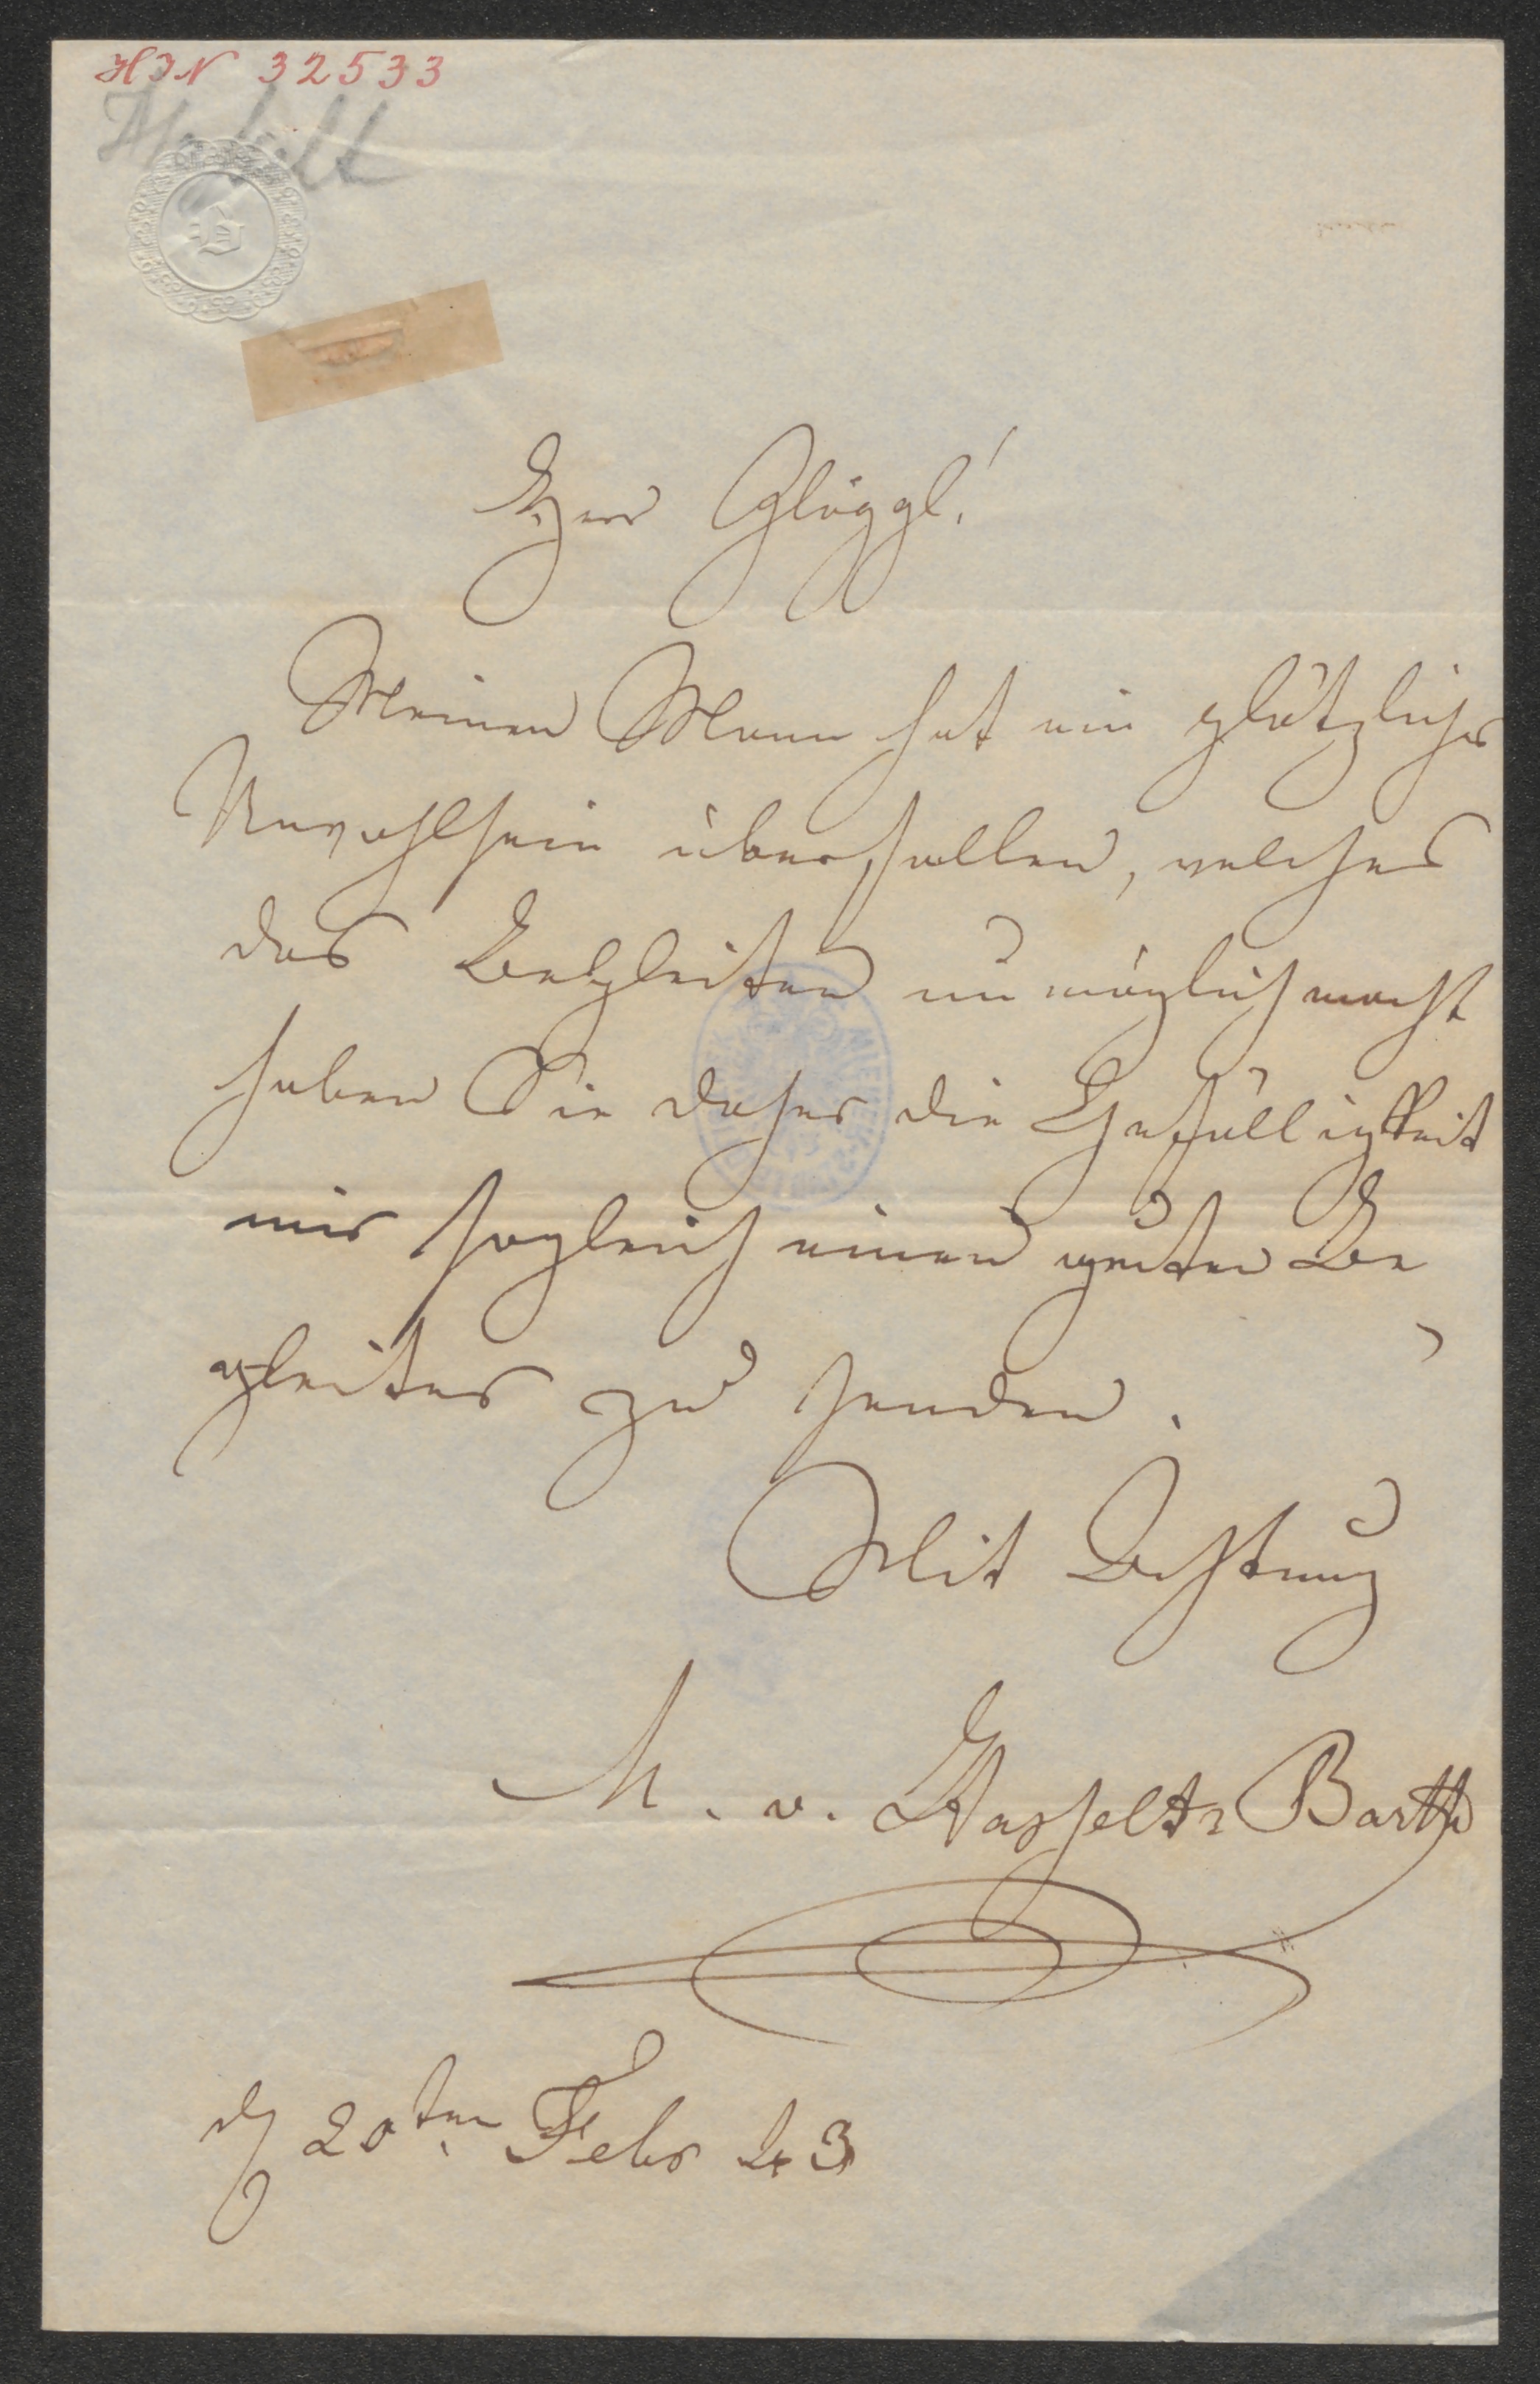 HIN 32533
Herr Glöggl!
Meinen Mann hat ein plötzliches
Unwohlsein überfallen, welches
das Begleiten unmöglich macht
haben Sie daher die Gefälligkeit
mir sogleich einen guten Be
gleiter zu senden.
Mit Achtung
M. v. Hasselt-Barth
d 20ten Febr 43